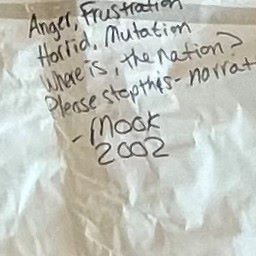 Anger, Frustration
Horrid, Mutation
Where is, the Nation?
Please stop this - norrat
- MOOK
2002